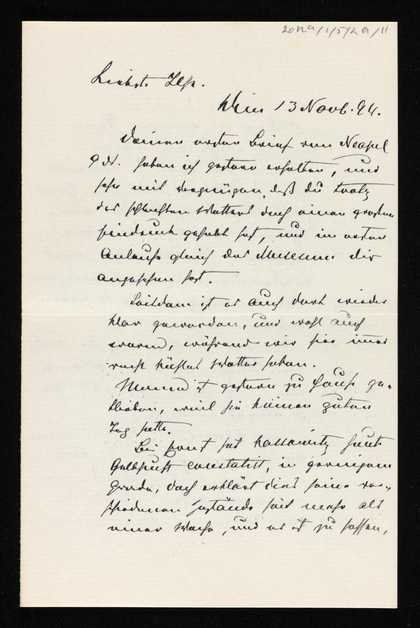 20129/1/5/29/11
Liebste Ilse.
Wien 13 Novb. 94.
Deinen ersten Brief von Neapel
9 ds. haben ich gestern erhalten, und
sehe mit Vergnügen, daß du trotz
des schlechten Wetters doch einen großen
Eindruck gehabt hast, und im ersten
Anlauf gleich das Museum dir
angesehen hast.
Seitdem ist es auch dort wieder
klar geworden, und wohl auch
warm, während wir hier immer
recht kühles Wetter haben.
Mama ist gestern zu Hause ge-
blieben, weil sie keinen guten
Tag hatte.
Bei Ernst hat Kassowitz heute
Gelbsucht constatirt, in geringem
Grade, doch erklärt dies seine ver-
schiedenen Zustände seit mehr als
einer Woche, und es ist zu hoffen,